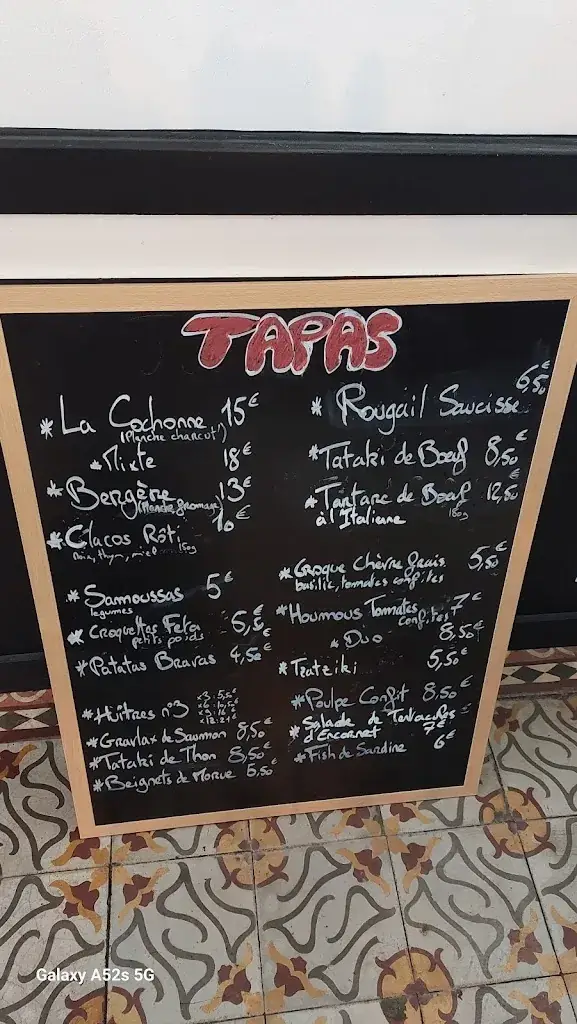 TAPAS
* La Cochonne 15€
(Planche charcut')
* Mixte 18€
* Bergère 13€
(Planche fromage)
* Clacos Rôti 10€
noix, thym, miel 150g
* Samoussas 5€
légumes
* Croquettes Feta
petits poids
* Patatas Bravas 4,50€
* Huîtres n°3
x3: 5,50€
x6: 10,50€
x9: 16€
x12: 21€
* Gravlax de Saumon 8,50€
* Tataki de Thon 8,50€
* Beignets de Morue 5,50€
* Rougail Saucisse 6,50€
* Tataki de Boeuf 8,50€
* Tartare de Boeuf 12,50€
à l'Italienne 180g
* Croque Chèvre frais 5,50€
basilic, tomates confites
* Houmous Tomates 7€
confites
* Duo 8,50€
* Tzatziki 5,50€
* Poulpe Confit 8,50€
* Salade de Tentacules
d'Encornet 7€
* Fish de Sardine 6€
Galaxy A52s 5G